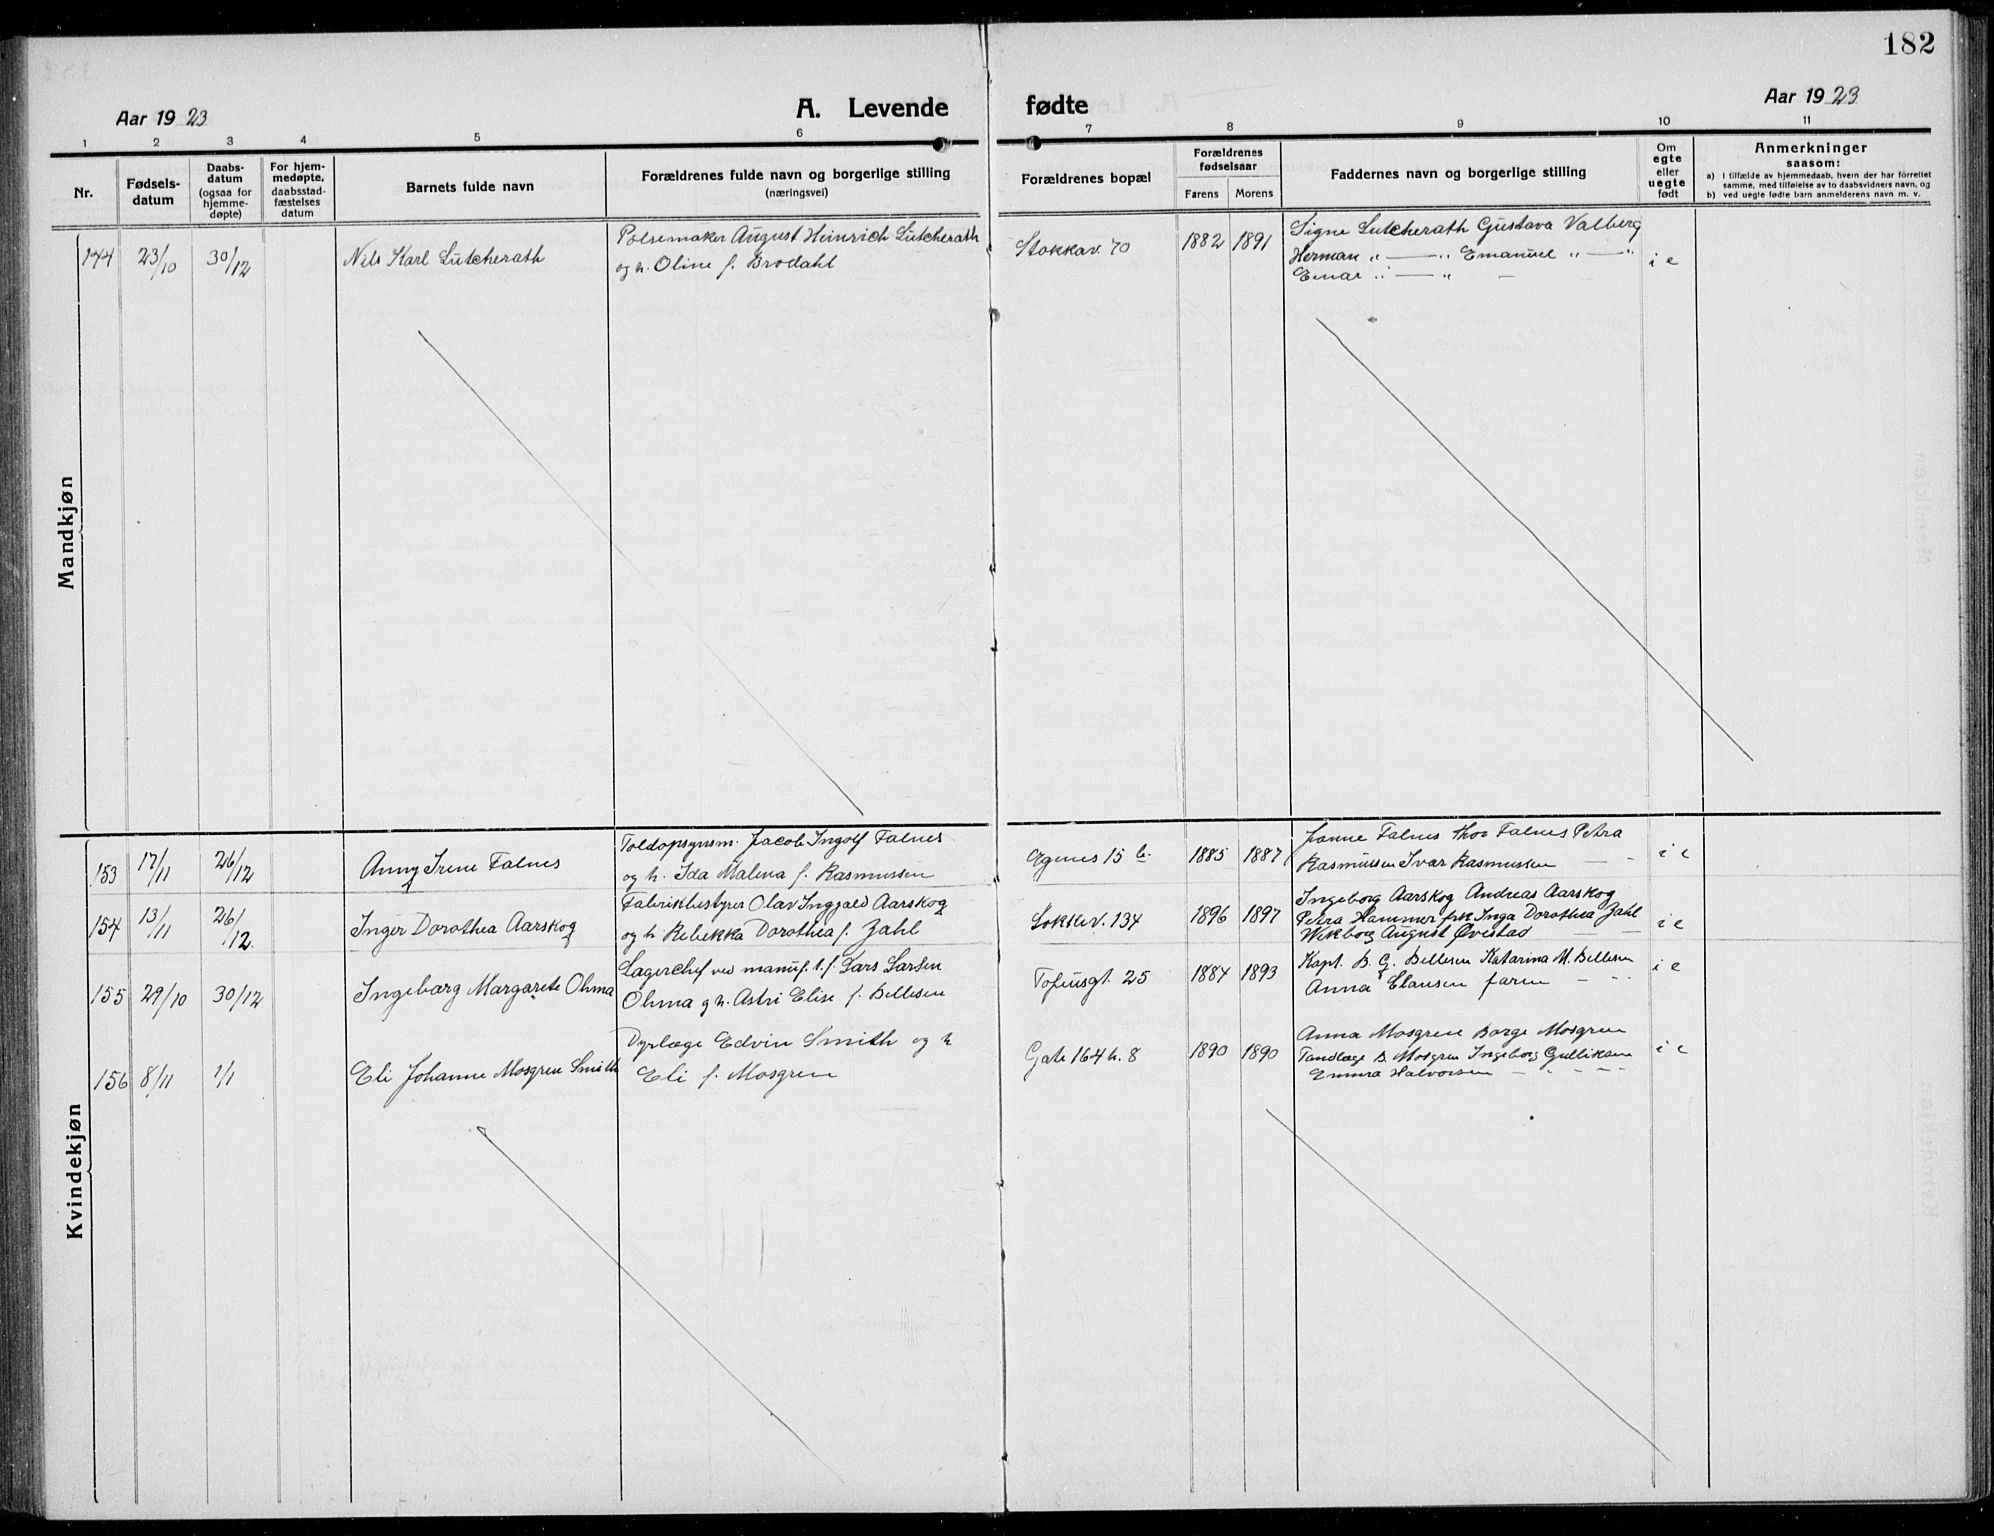 182
Aar 1923
A. Levende fødte
Aar 1923
1 2 3 4 5 6 7 8 9 10 11
Nr.
Fødsels-
datum
Daabs-
datum
(ogsaa for
hjemme-
døpte)
For hjem-
medøpte,
daabsstad-
fæstelses
datum
Barnets fulde navn
Forældrenes fulde navn og borgerlige stilling
(næringsvei)
Forældrenes bopæl
Forældrenes
fødselsaar
Farens Morens
Faddernes navn og borgerlige stilling
Om
egte
eller
uegte
født
Anmerkninger
saasom:
a) i tilfælde av hjemmedaab, hvem der har forrettet
samme, med tilføielse av to daabsvidners navn, og
b) ved uegte fødte barn anmelderens navn m. v.
Mandkjøn
144 23/10 30/12 Nils Karl Lütcherath
Pølsemaker August Heinrich Lütcherath
og h. Oline f. Brodahl
Stokkav. 70 1882 1891
Signe Lutcherath Gustava Valberg
Herman " — " Emanuel " — "
Einar " — " —
i e
Kvindekjøn
153 17/11 26/12 Anny Irene Falnes
Toldopsynsm. Jacob Ingolf Falnes
og h. Ida Malena f. Rasmussen
Egenes 15 b. 1885 1887
Janne Falnes Thor Falnes Petra
Rasmussen Ivar Rasmussen — "
i e
154 13/11 26/12. Inger Dorothea Aarskog
Fabrikbestyrer Olav Inggald Aarskog
og h Rebekka Dorothea f. Zahl
Lokkev. 134 1896 1897
Ingeborg Aarskog Andreas Aarskog
Petra Hammer frk Inga Dorothea Zahl
Wikborg August Øvestad — —
i e
155 29/10 30/12 Ingebarg Margarete Ohma
Lagerchef ved manuf. t. f. Lars Larsen
Ohma g h. Astri Elise f. Bellesen
Tofeusgt. 25 1884 1893
Kapt. B. G. Bellesen Katarina M. Bellesen
Anna Clausen faren — - -
i e
156 8/11 1/1 Eli Johanne Mosgren Smith
Dyrlæge Edvin Smith og h
Eli f. Mosgren
Gate 164 h. 8 1890 1890
Anna Mosgren Borge Mosgren
Tandlæge B. Mosgren Ingeborg Gulliksen
Emma Halvorsen — " — " —
i e